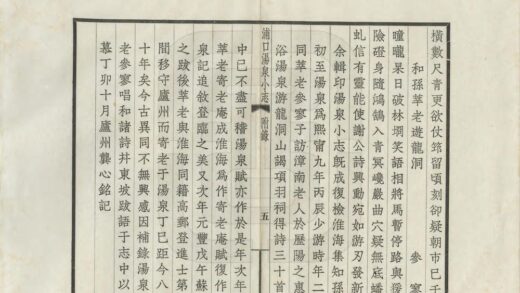 橫數尺青更欲仗筇留頃刻卻疑朝市已千
和孫莘老遊龍洞 參寥
曈曨杲日破林坰笑語相將馬暫停路與猨
險磴身隨鴻鵠入青冥巉巖曲穴疑無底蟠
虬信有靈能使謝公詩興動宛如游刃發新
余輯印湯泉小志旣成復檢淮海集知孫
初至湯泉爲熙甯九年丙辰少游時年二
同莘老參寥子訪漳南老人於歷陽之惠
浴湯泉游龍洞山謁項羽祠得詩三十首
浦口湯泉小志 附錄 五
中已不盡可稽湯泉賦亦作於是年次年
莘老寄老庵成淮海爲作寄老庵賦復作
泉記追敘登臨之美又次年元豐戊午蘇
之跋後莘老與淮海同籍高郵登進士第
閒移守廬州而寄老于湯泉丁巳距今八
十年矣今古異同不無興感因補錄湯泉
老參寥唱和諸詩幷東坡跋語于志中以
慕丁卯十月廬州龔心銘記